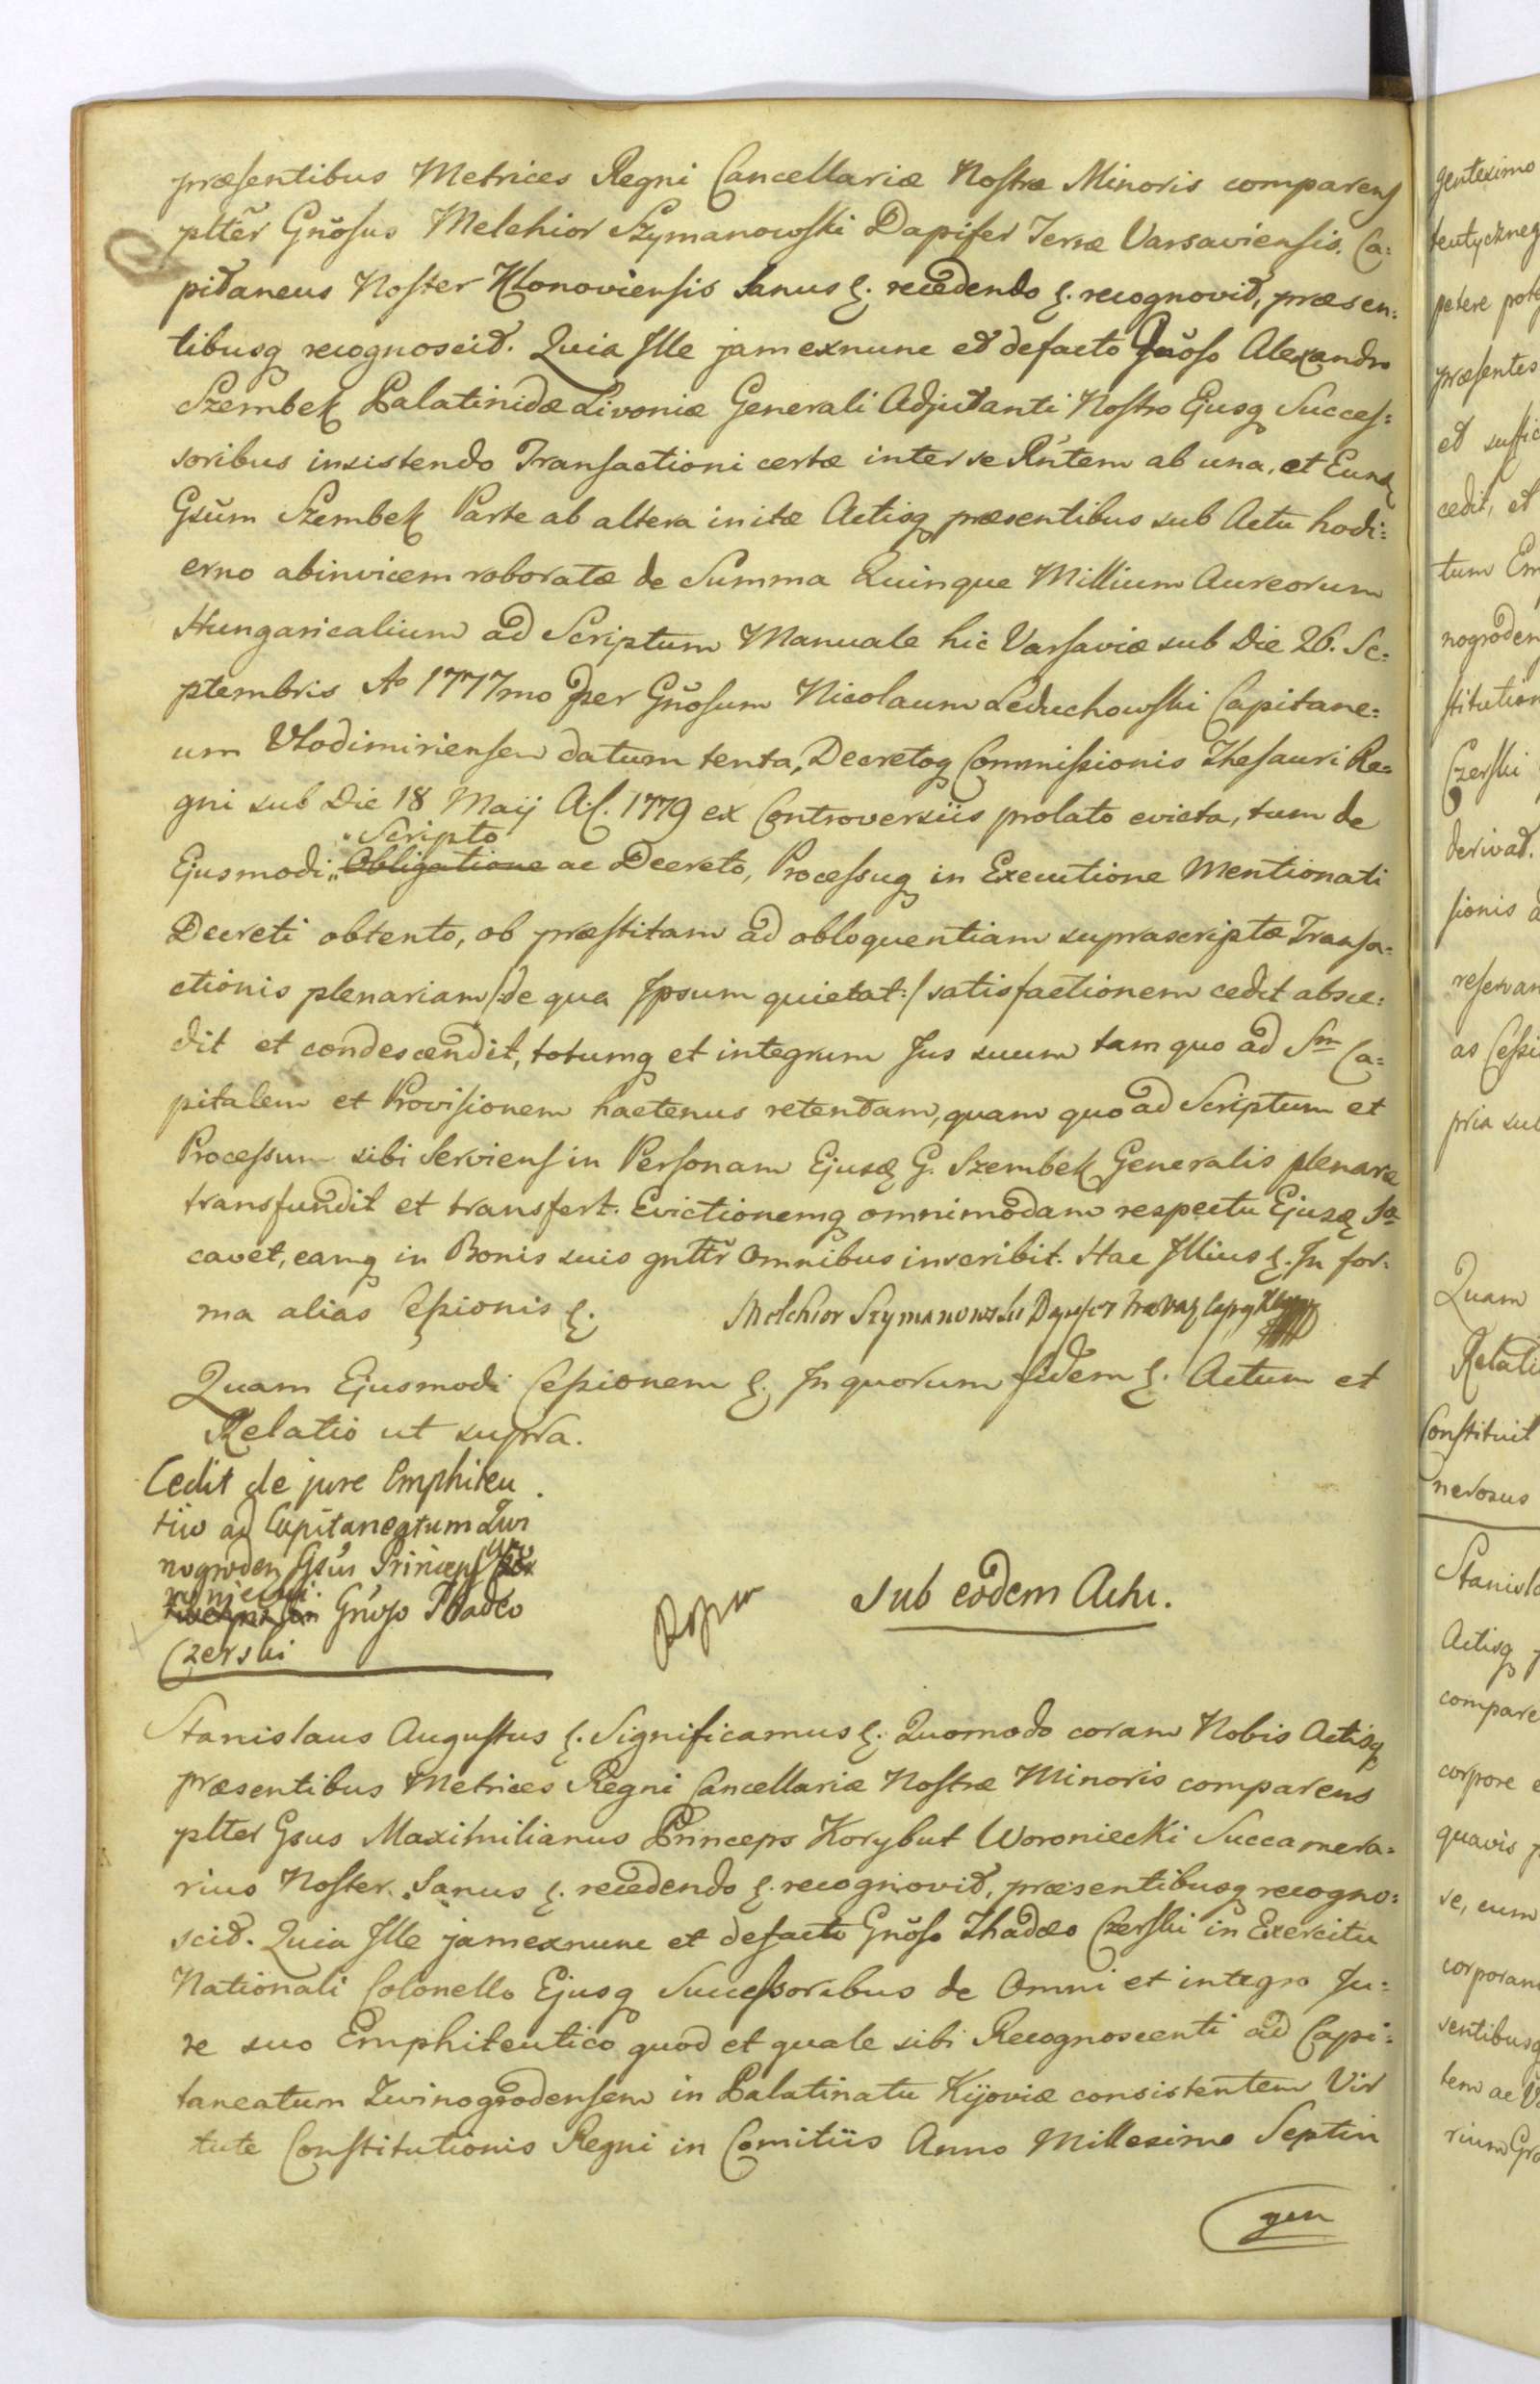 præsentibus Metrices Regni Cancellariæ Nostræ Minoris comparens
plter Gnosus Melchior Szymanowski Dapifer Terræ Varsaviensis, Ca=
pitaneus Noster Klonoviensis Sanus &. recedendo &. recognovit, præsen=
tibusq recognoscit. Quia Ille jam exnunc et defacto Gnoso Alexandro
Szembek Palatinidæ Livoniæ Generali Adjutanti Nostro Ejusq Succes=
soribus insistendo Transactioni certæ inter se Rñtem ab una, et Eund
Gsum Szembek Parte ab altera initæ Actisq præsentibus sub Actu hodi=
erno abinvicem roboratæ de Summa Quinque Millium Aureorum
Hungaricalium ad Scriptum Manuale hic Varsaviæ sub Die 26. Se=
ptembris Ao 1777mo per Gnosum Nicolaum Leduchowski Capitane=
um Vlodimiriensem datum tenta, Decretoq Commissionis Thesauri Re=
gni sub Die 18 Maij A. C. 1779 ex Controversiis prolato evicta, tum de
Scripto
Ejusmodi Obligatione ac Decreto, Processuq in Executione Mentionati
Decreti obtento, ob præstitam ad obloquentiam suprascriptæ Transa=
ctionis plenariam /:de qua Ipsum quietat:/ satisfactionem cedit absce=
dit et condescendit, totumq et integrum Jus suum tam quo ad Sm Ca=
pitalem et Provisionem hactenus retentam, quam quo ad Scriptum et
Processum sibi Serviens in Personam Ejusd G. Szembek Generalis plenarie
transfundit et transfert. Evictionemq omnimodam respectu Ejusd Sæ
cavet, eamq in Bonis suis gnltr Omnibus inscribit. Hac Illius &. In for=
ma alias Cessionis &.
Melchior Szymanowski Dapifer
Quam Ejusmodi Cessionem &. In quorum fidem &. Actum et
Relatio ut supra.
Cedit de jure Emphiteu
tico ad Capitaneatum Zwi
nogroden Gsus Princeps Wo
roniecki Gnoso Thadeo
Czerski
Sub eodem Actu.
Stanislaus Augustus &. Significamus &. Quomodo coram Nobis Actisq
præsentibus Metrices Regni Cancellariæ Nostræ Minoris comparens
plter Gsus Maximilianus Princeps Korybut Woroniecki Succamera=
rius Noster. Sanus &. recedendo &. recognovit, præsentibusq recogno=
scit. Quia Ille jamexnunc et defacto Gnoso Thadæo Czerski in Exercitu
Nationali Colonello Ejusq Successoribus de Omni et integro Ju=
re suo Emphiteutico quod et quale sibi Recognoscenti ad Capi=
taneatum Zwinogrodensem in Palatinatu Kijoviæ consistentem Vir
tute Constitutionis Regni in Comitiis Anno Millesimo Septin
gen